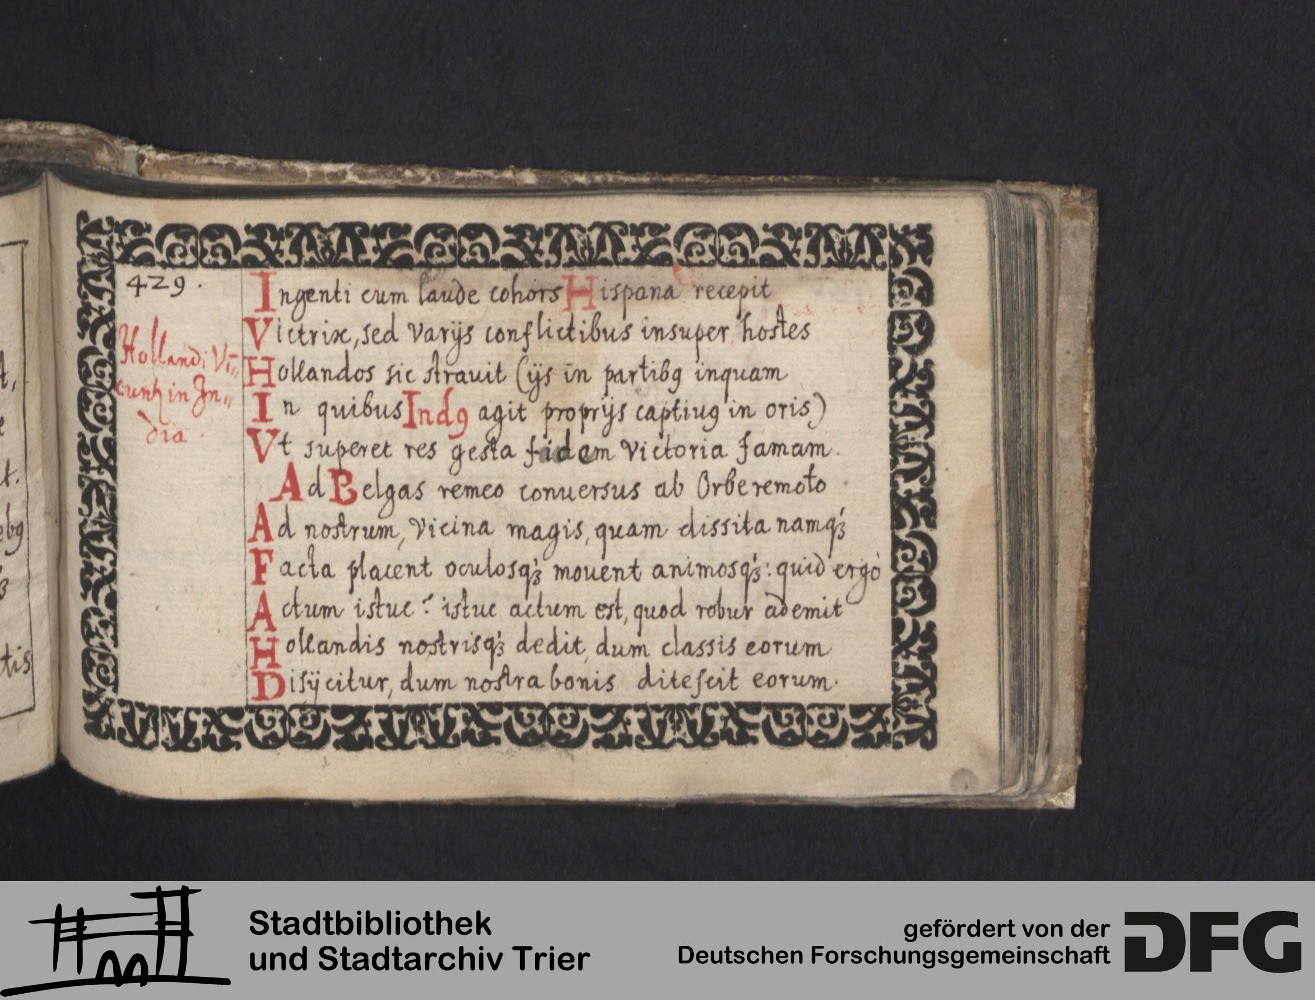 429.
Hollandi Vi„
cunt in In„
dia.
Ingenti cum laude cohors Hispana recepit
Victrix, sed varijs conflictibus insuper hostes
Hollandos sic stravit (ijs in partibꝰ inquam
In quibus Indꝰ agit proprijs captiuꝰ in oris)
Vt superet res gesta fidem victoria famam.
Ad Belgas remeo conuersus ab Orbe remoto
Ad nostrum, vicina magis, quam dissita namqꝫ
Facta placent oculosqꝫ mouent animosqꝫ: quid ergò
Actum istuc? istuc actum est, quod robur ademit
Hollandis nostrisqꝫ dedit, dum classis eorum
Disijcitur, dum nostra bonis ditescit eorum.
t,
e
t.
ebꝰ
ꝫ
tis
Stadtbibliothek
und Stadtarchiv Trier
gefördert von der
Deutschen Forschungsgemeinschaft
DFG